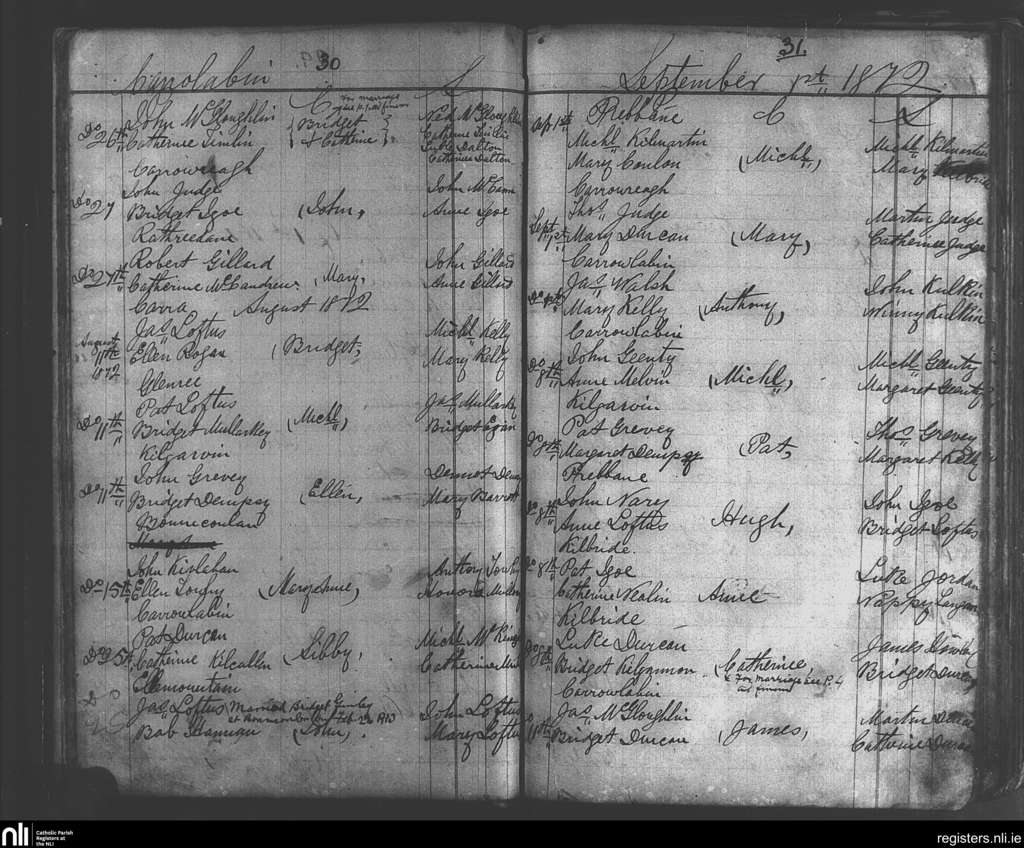 30
Carrolabin C S
for marriage
see p. 1 at finem
Do 26th John McGloughlin { Bridget } Ned McGloughlin
Catherine Timlin & Cathrine Catherine Timlin
Luke Dalton
Catherine Dalton
Carrowreagh
John Judge John McCann
Do 27 Bridget Igoe (John, Anne Igoe
Rathreedane
Robert Gillard John Gillard
Do 27th Catherine McCandrew (Mary, Anne Gillard
Carra August 1872
August Jas Loftus Michl Kelly
11th Ellen Rogan (Bridget, Mary Kelly
1872
Glenree
Pat Loftus Jas Mullarkey
Do 11th Bridget Mullarkey (Michl,) Bridget Egan
Kilgarvin
John Grevey Dennot
Do 11th Bridget Dempsy (Ellen, Mary Barrett
Bonneconlan
John Kivlehan Anthony
Do 15th Ellen Loury (Maryanne, Honora
Carrowlabin
Pat Durcan Michl
Do 25th Catherine Kilcullen (Sibby, Catherine
Ellemountain
Jas Loftus Married Bridget Ginley John Loftus
at Bonniconlon Feb 22 1913
Bab Hannan (John, Mary Loftus
31
September 1st 1872
1st Prebbane C S
Michl Kilmartin Michl Kilmartin
Mary Conlon (Michl,) Mary
Carrowreagh
Sept 1st Thos Judge Martin Judge
Mary Durcan (Mary, Catherine Judge
Carrowlabin
Do 1st Jas Walsh John Kulkin
Mary Kelly (Anthony, Winny Kulkin
Carrowlabin
Do 8th John Geenty Michl Geenty
Anne Melvin (Michl,) Margaret Geenty
Kilgarvin
Do 8th Pat Grevey Thos Grevey
Margaret Dempsy (Pat, Margaret Kelly
Prebbane
Do 8th John Nary John Igoe
Anne Loftus Hugh, Bridget Loftus
Kilbride.
Do 8th Pat Igoe Luke Jordan
Catherine Nealin Anne Nappy Langan
Kilbride
Do 8th Luke Durcan James Dowley
Bridget Kilgannon (Catherine, Bridget Durcan
& for marriage see P. 4
at finem
Carrowlabin
Jas McGloughlin Martin Durcan
Do 11th Bridget Durcan (James, Catherine Durcan
nli Catholic Parish
Registers at
the NLI
registers.nli.ie